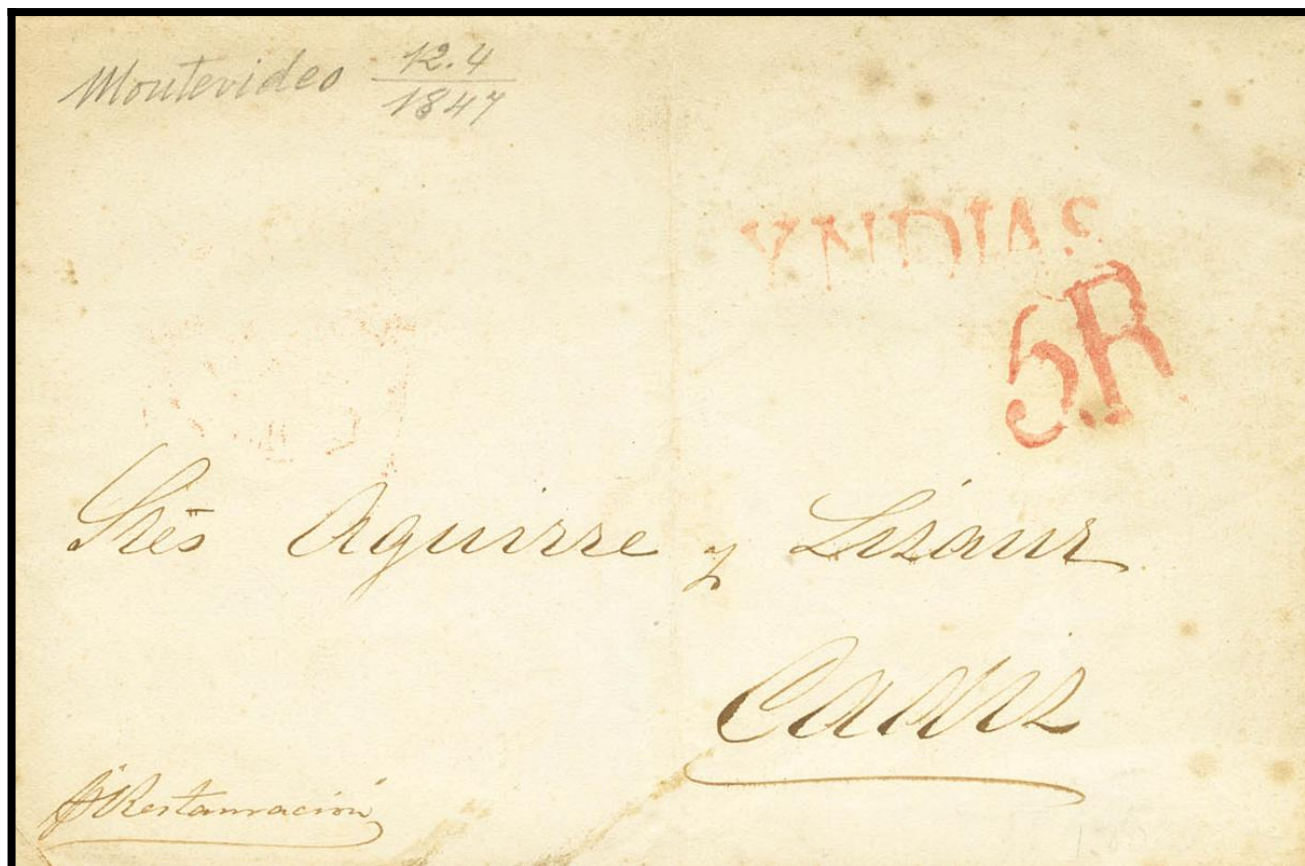 Montevideo 12.4
1847
YNDIAS
5.R
Srēs Aguirre y Lizaur
Cadiz
pª Restauración